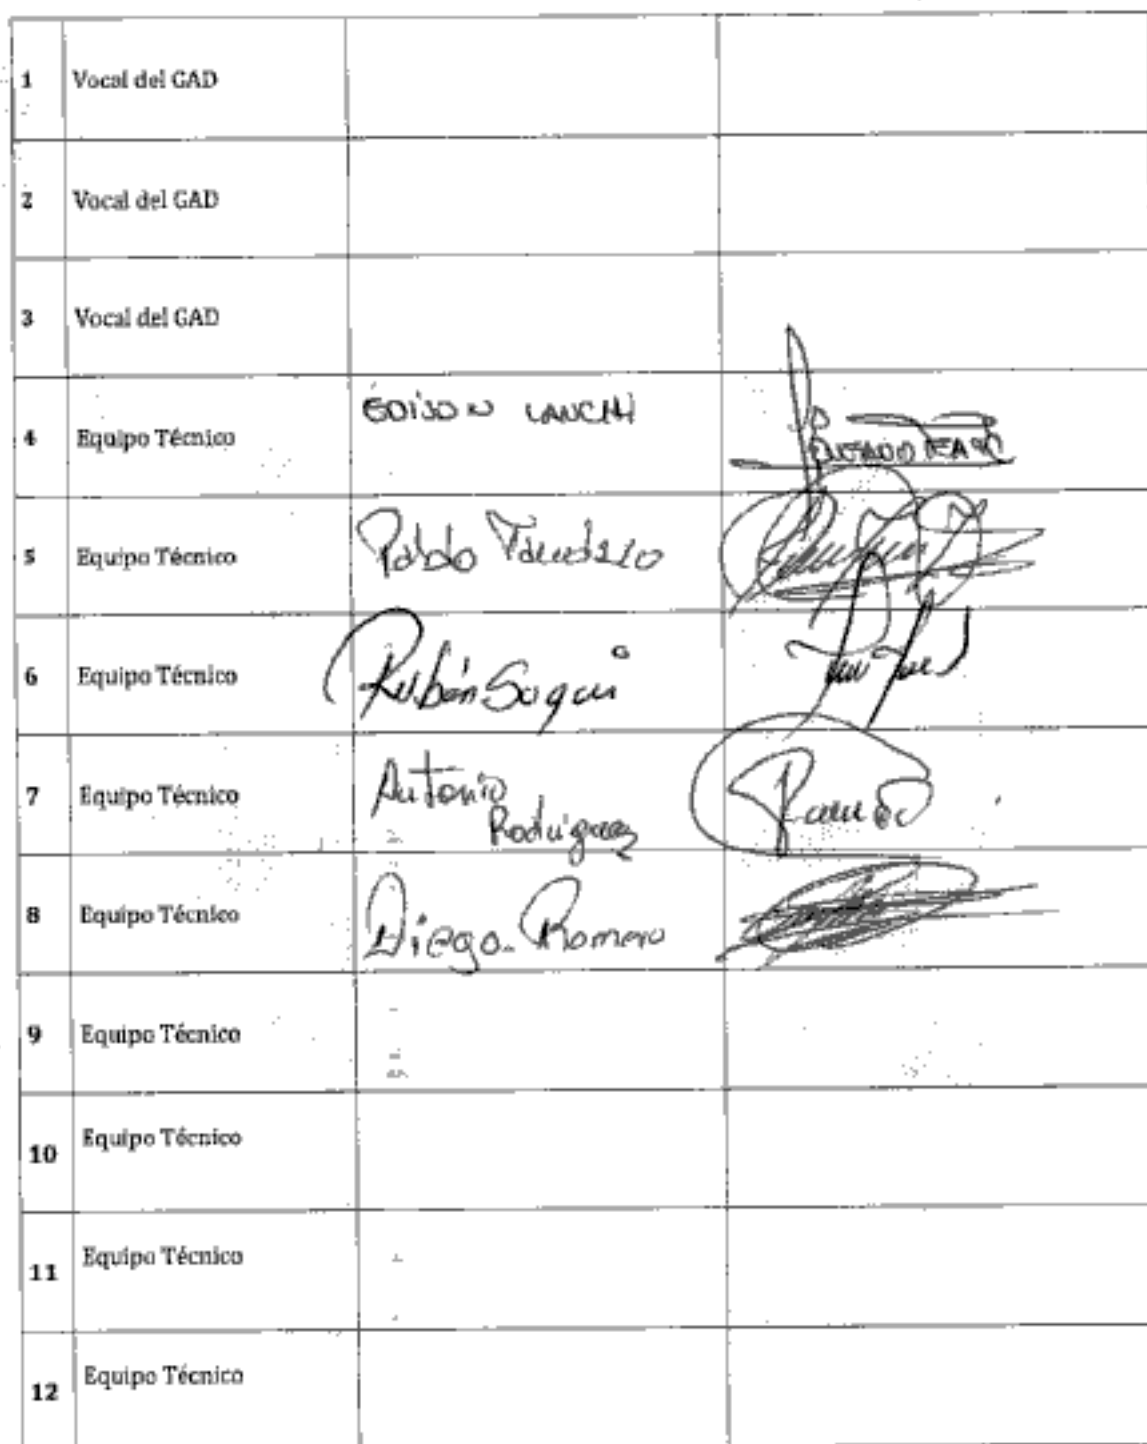 1 Vocal del GAD
2 Vocal del GAD
3 Vocal del GAD
4 Equipo Técnico EDISON LANCHI
5 Equipo Técnico Pablo
6 Equipo Técnico Rubén Sagui
7 Equipo Técnico Antonio
Rodriguez
8 Equipo Técnico Diego Romero
9 Equipo Técnico
10 Equipo Técnico
11 Equipo Técnico
12 Equipo Técnico